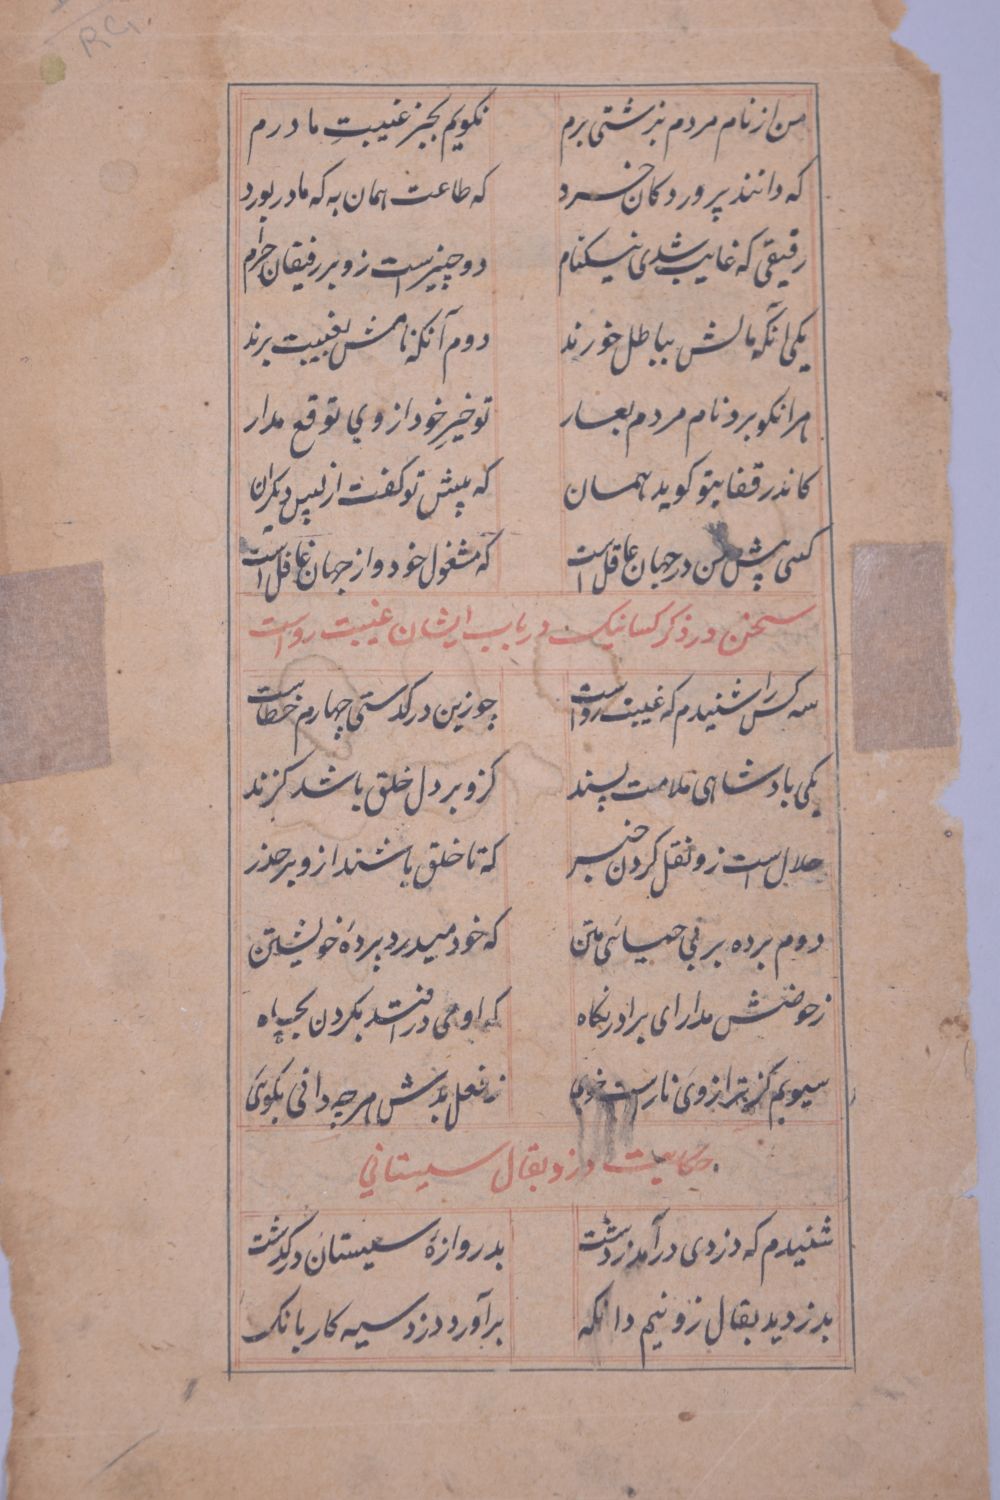 RG.
من از نام مردم بزشتی برم نکویم بجز غیبت مادرم
که دانند پروردکان خرد که طاعت همان به که مادر بود
رفیقی که غایب شدی نیکنام دو چیز است زو بر رفیقان حرام
یکی انکه مالش بباطل خورند دوم آنکه نامش بغیبت برند
هرانکو برد نام مردم بعار تو خیرِ خود از وی توقع مدار
کاندر قفا بتو کوید همان که پیش تو کفت از پس دیکران
کسی پیش من در جهان عاقل است که مشغول خود و از جهان غافل است
سخن در ذکر کسانیک در باب ایشان غیبت رواست
سه کس را شنیدم که غیبت رواست چو زین درکذستی چهارم خطاست
یکی بادشاهی ملامت پسند کزو بر دل خلق باشد کزند
حلال است زو نقل کردن خبر که تا خلق باشند ازو بر حذر
دوم برده بر بی حیائی متن که خود میدرد بردهٔ خویشتن
زحوضش مدار ای برادر نکاه که او می درافتد بکردن بچاه
سیویم کژ ترازوی ناراست خوی ز فعل بدش هرچه دانی بکوی
حکایت دزد و بقال سیستانی
شنیدم که دزدی درآمد ز دشت بدروازهٔ سیستان درکذشت
بدزدید بقال زو نیم دانکه برآورد دزد سیه کار بانک